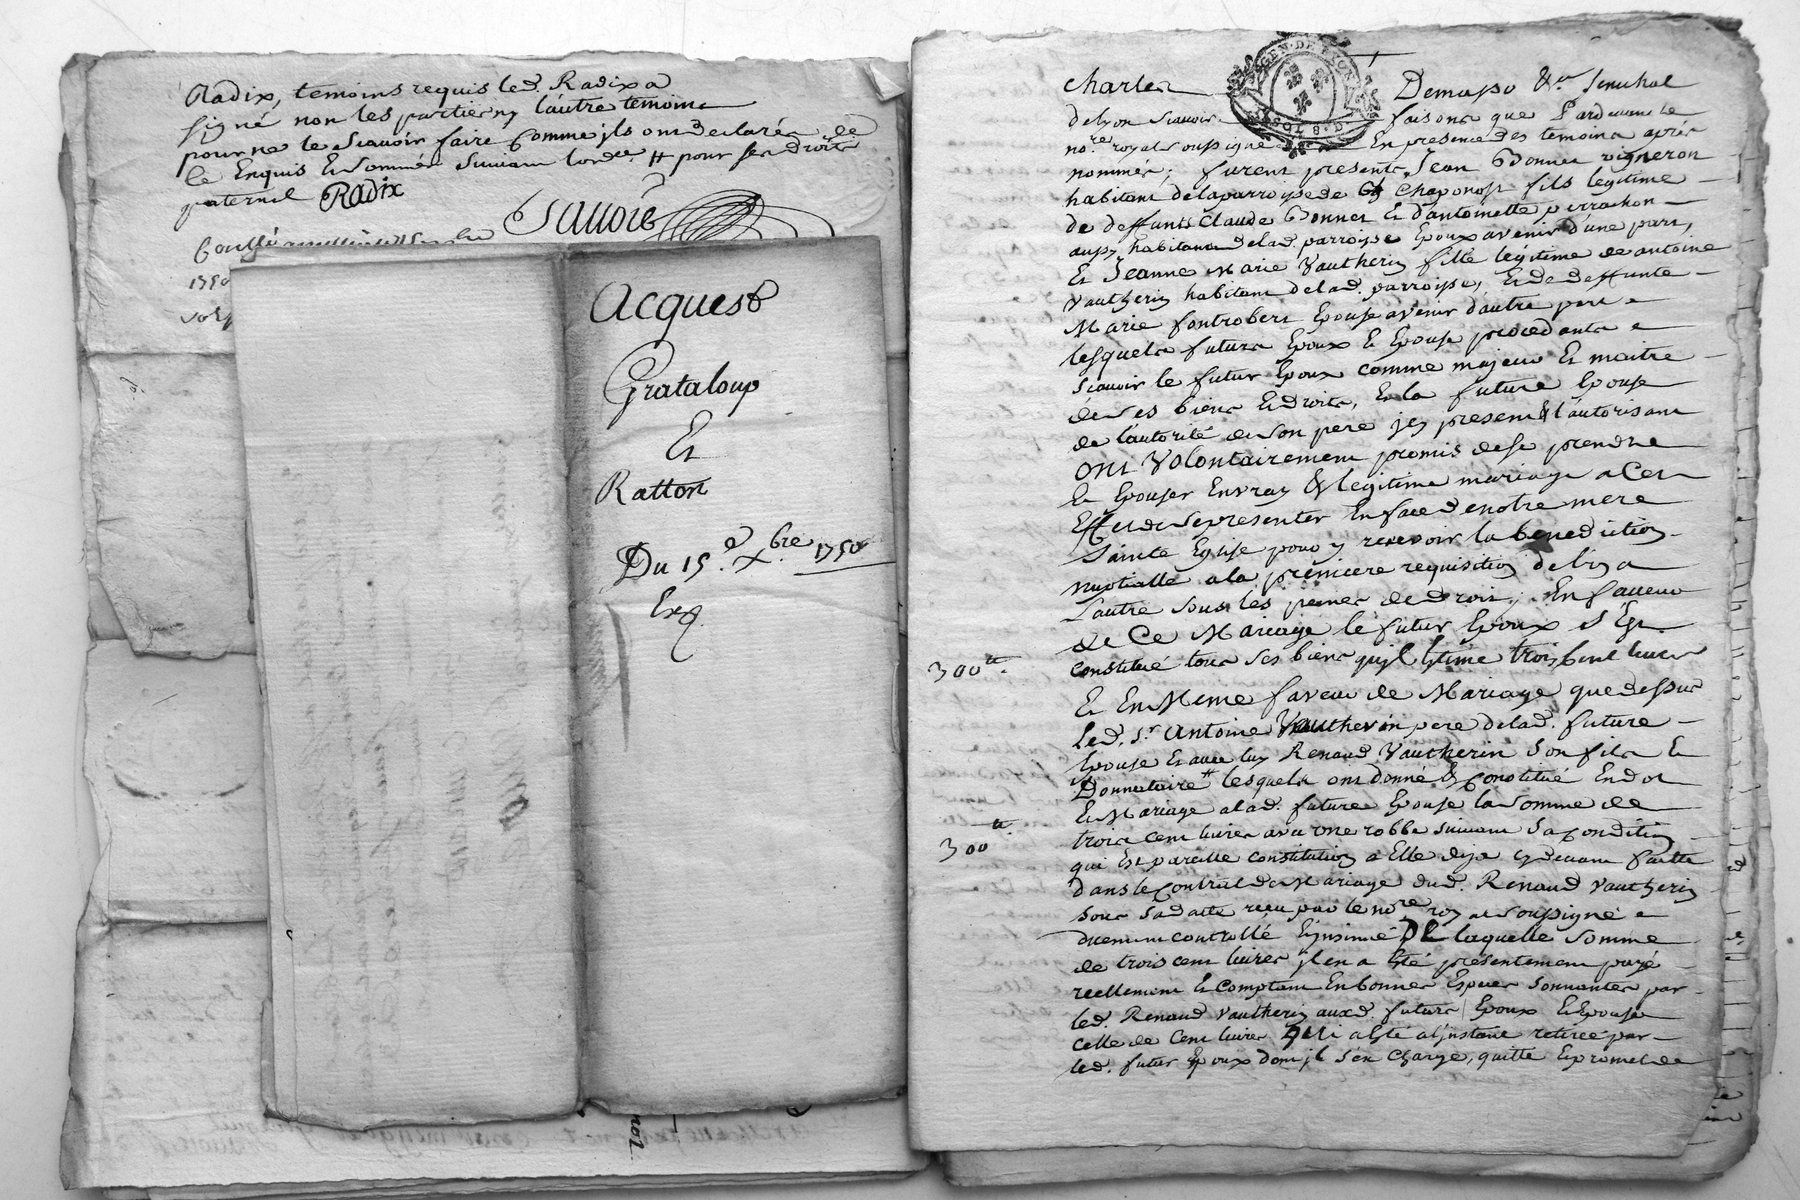 Radix, temoins requis led. Radix a
signé non les parties ny l'autre temoins
pour ne le scavoir faire comme ils ont declarés de
ce Enquis Et sommés suivant lord.ce # pour ses droits
paternel Radix
1750
Acquest
Grataloup
Et
Ratton
Du 15.e Xbre. 1750
Exp.
GEN. DE LYON
charles Demasso &.a Senechal
de lyon scavoir faisons que Pardevant le
no.re royal soussigné En presence des temoins après
nommés; furent presents Jean Bonnet vigneron
habitant de la parroisse de Chaponost fils legitime
de deffunts Claude Bonnet Et d'antoinette perrachon
aussy habitans de lad. parroisse Epoux avenir d'une part,
Et Jeanne Marie Vautherin fille légitime de antoine
Vautherin habitant de lad. parroisse, Et de deffunte
Marie fontrobert Epouse avenir d'autre part
lesquels futurs Epoux Et Epouse procedants
scavoir le futur Epoux comme majeur Et maitre
de ses biens Et droits, Et la future Epouse
de l'autorité de son pere jcy present & l'autorisant
ont volontairement promis de se prendre
Et Epouser En vray & legitime mariage a Cet
Effet de se presenter En face de notre mere
Sainte Eglise pour y recevoir la benediction
nuptialle a la premiere requisition de l'un a
l'autre sous les peines de droit; En faveur
de Ce Mariage le futur Epoux s'Est
300tt. constitué tous ses biens qu'jl Estime trois Cent livres
Et En Meme faveur de Mariage que dessus
led. Sr. Antoine Vautherin pere de lad. future
Epouse Et avec luy Renaud Vautherin son fils Et
Donnataire # lesquels ont donné & constitué En dot
Et Mariage a lad. future Epouse la somme de
300tt. trois cent livres avec une robbe suivant sa condition
qui Est pareille constitution a Elle deja cy devant faitte
dans le Contrat de Mariage dud. Renaud Vautherin
sous sa datte reçu par le no.re royal soussigné
duement controllé Et jnsinué DE laquelle somme
de trois cent livres jl en a Eté presentement payé
reellement Et comptant En bonnes Especes sonnantes par
led. Renaud Vautherin auxd. futurs Epoux Et Epouse
celle de Cent livres qui a Eté a l'jnstant retirée par
led. futur Epoux dont jl s'en charge, quitte Et promet de